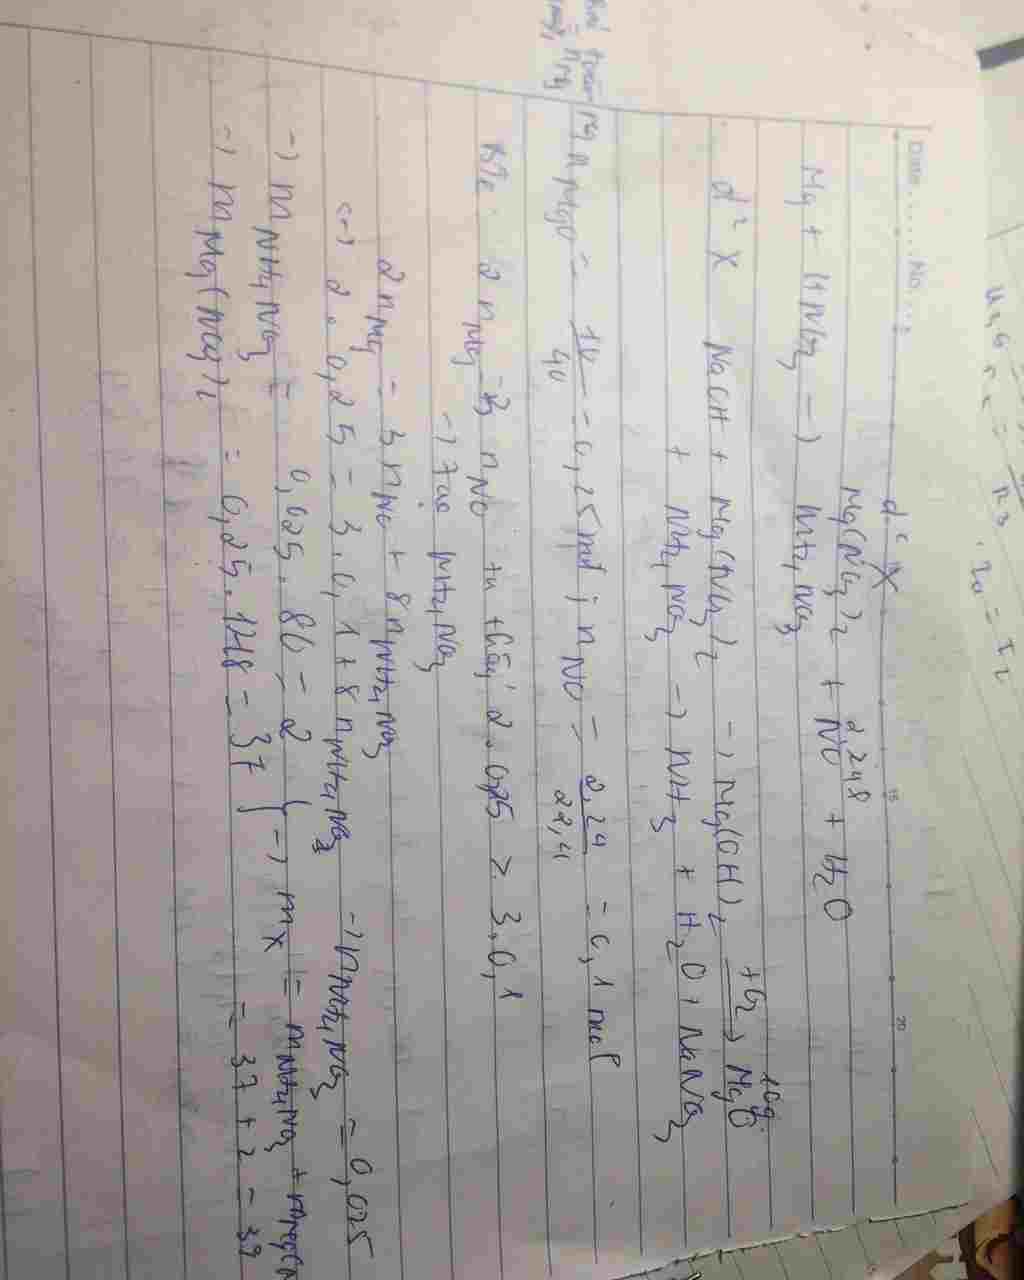 Date......No....
d² X
Mg(NO3)2 + NO + H2O
2,24 l
Mg + HNO3 → NH4NO3
10g
d² X NaOH + Mg(NO3)2 → Mg(OH)2 +O2→ MgO
+ NH4NO3 → NH3 + H2O + NaNO3
nMgO = 10/40 = 0,25 mol ; nNO = 2,24/22,4 = 0,1 mol
2 nMg = 3 nNO ta thấy 2.0,25 > 3.0,1
→ Tạo NH4NO3
2nMg = 3nNO + 8nNH4NO3
↔ 2.0,25 = 3.0,1 + 8nNH4NO3 → nNH4NO3 = 0,025
→ mNH4NO3 = 0,025.80 = 2
→ mMg(NO3)2 = 0,25.148 = 37 } → mX = mNH4NO3 +
= 37 + 2 = 39
15
20